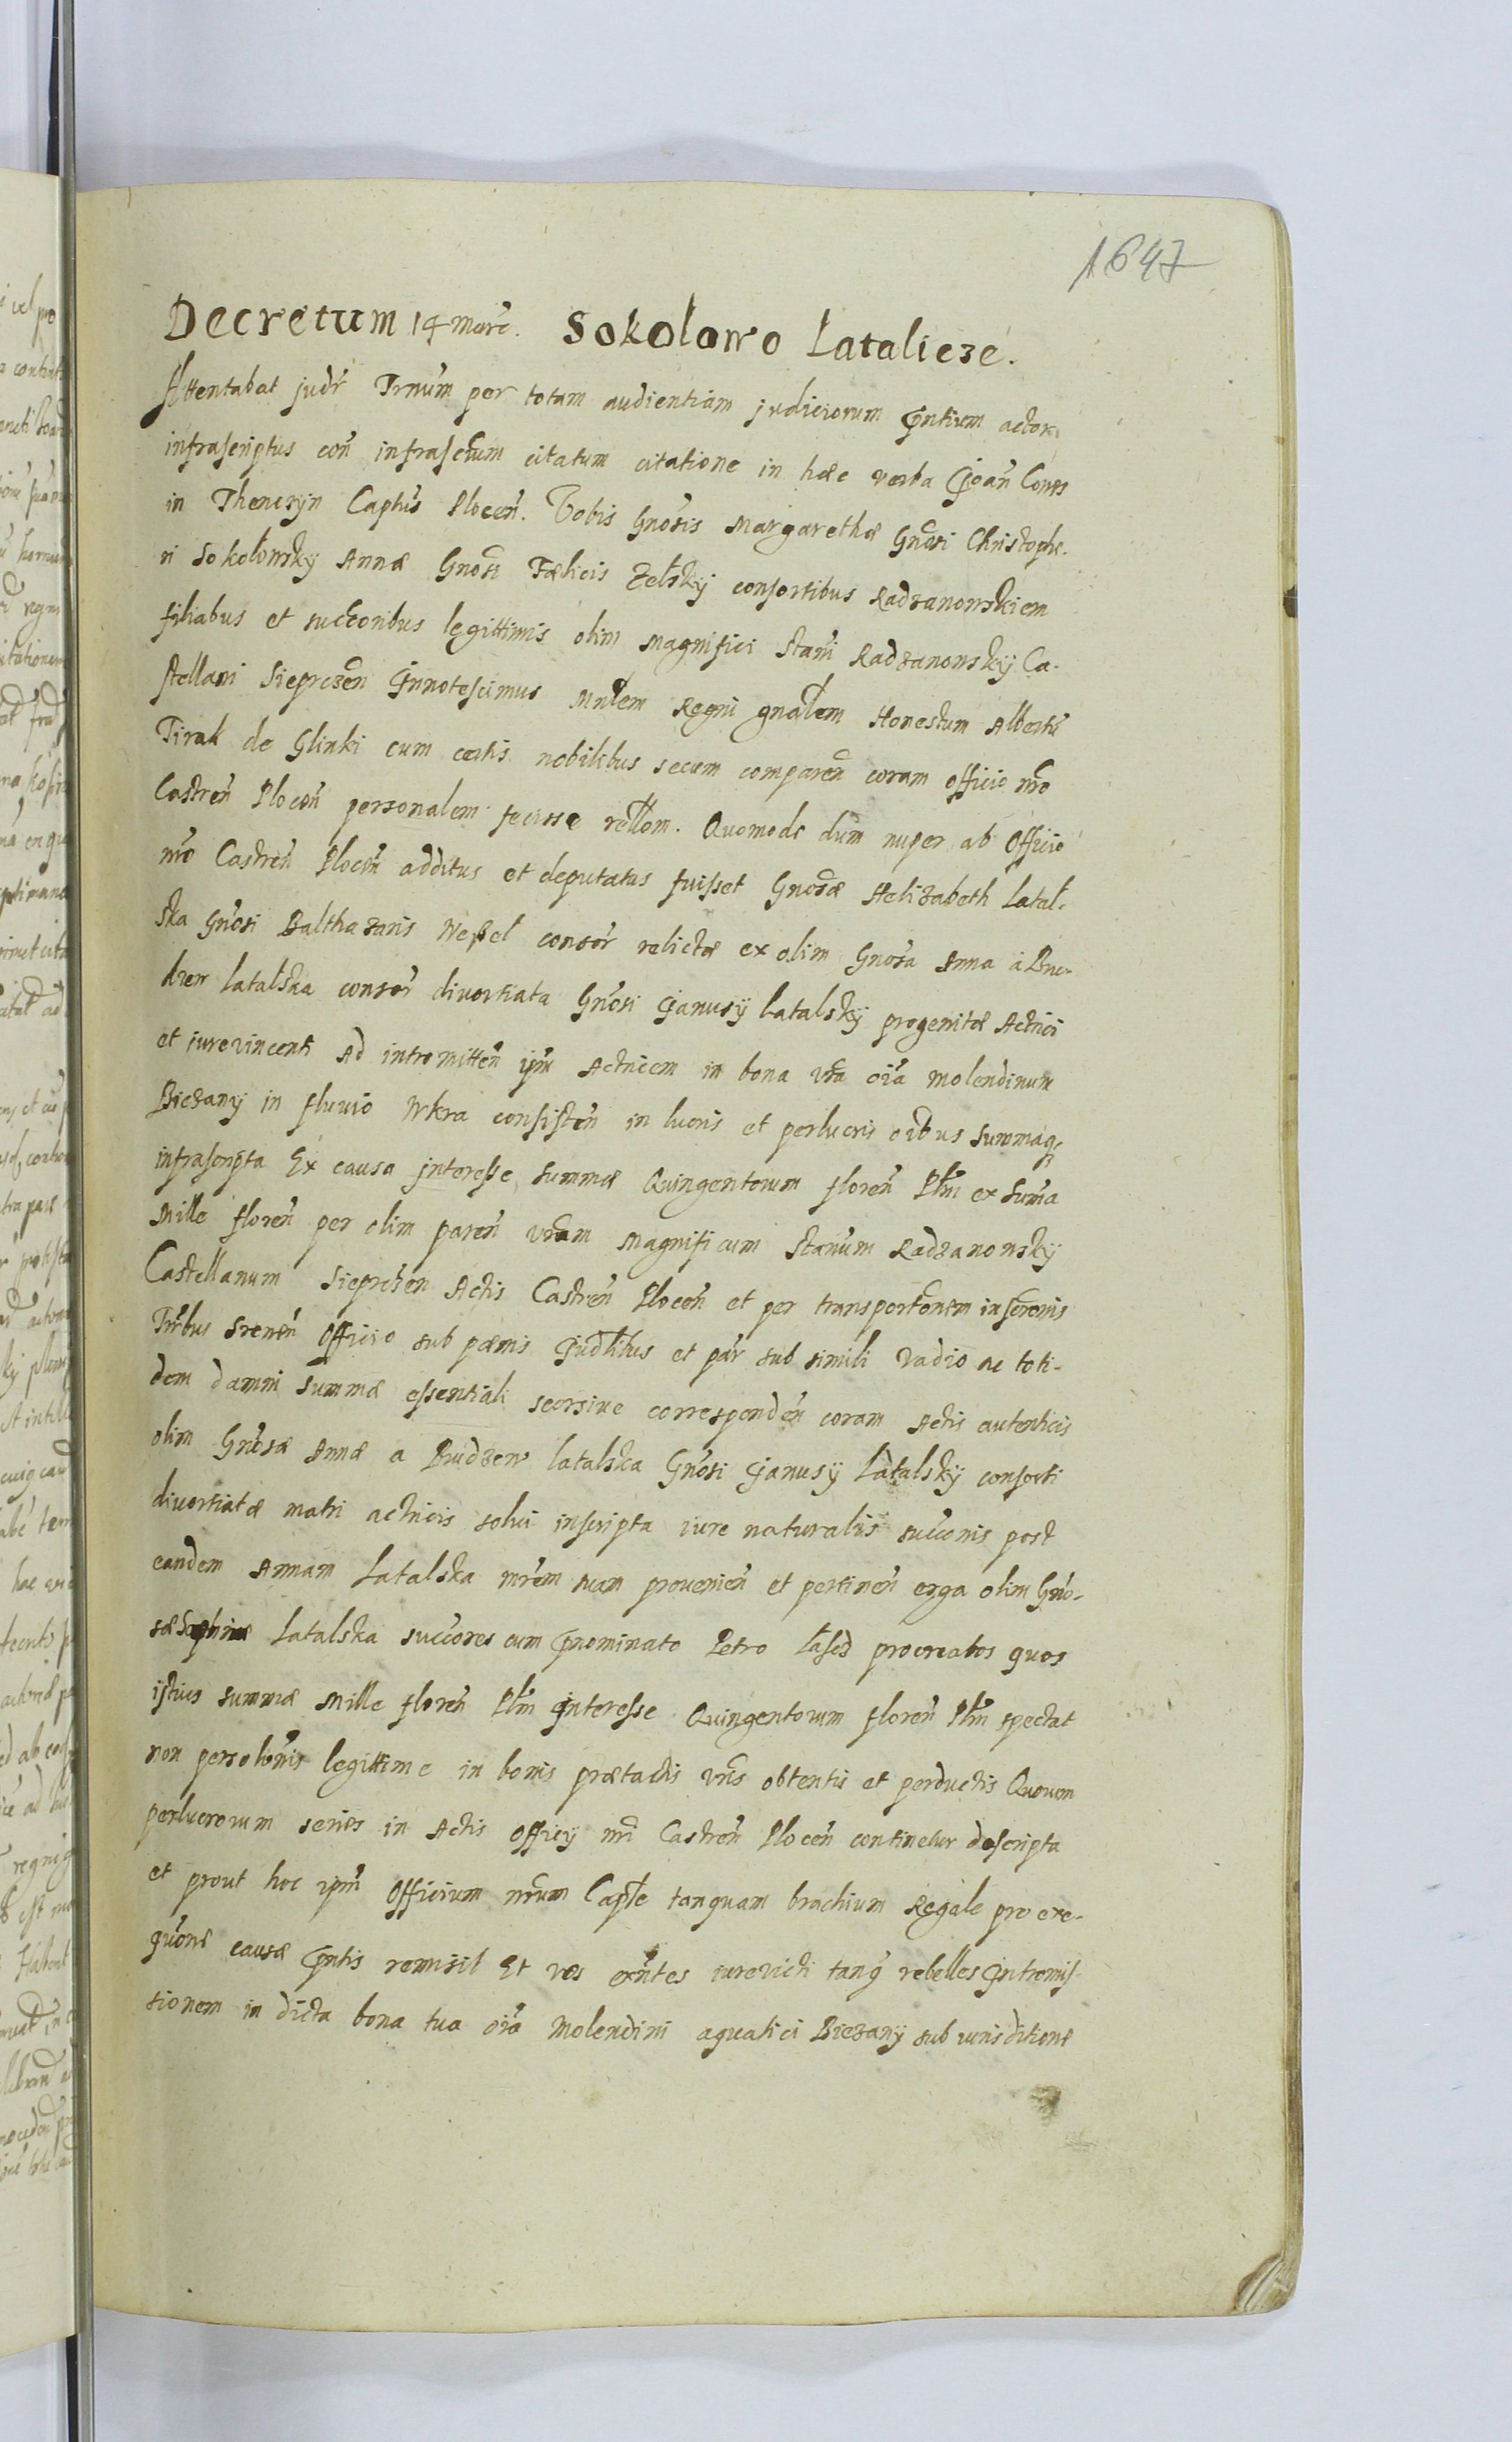 1647
Decretum 14 Marc. Sokolowo Latalicze.
Attentabat judr Trnum per totam audientiam judiciorum pntium actor
infrascriptus con infrascrum citatum citatione in haec verba Joan Comes
in Thencyn Captus Plocen. Vobis Gnosis Margarethæ Gnosi Christophe-
ri Sokolowsky Annæ Gnosi Fælicis Zelsky consortibus Radzanowskiem
filiabus et succoribus legittimis olim Magnifici Stani Radzanowsky Ca-
stellani Sieprczen Innotescimus Mnlem Regni gnalem Honestum Albertu
Pirak de Glinki cum certis nobilibus secum comparen coram officio nro
Castren Plocen personalem fecisse rellem. Quomodo dum nuper ab Officio
nro Castren Plocen additus et deputatus fuisset Gnosæ Helizabeth Latal-
ska Gnosi Balthazaris Wessel consor relictæ ex olim Gnosa Anna a Bu-
dzen Latalska consor divortiata Gnosi Janusÿ Latalskÿ progenitæ Actrici
et iurevincenti Ad intromitten ipm Actricem in bona vra oia molendinum
Biezanÿ in fluvio Wkra consisten in lucris et perlucris oibus summaq
infrascripta Ex causa interesse summæ Quingentorum floren Plm ex Suma
Mille floren per olim paren vrum Magnificum Stanum Radzanowskÿ
Castellanum Sieprczen Actis Castren Plocen et per transportonem inscronis
Trbus Srenen Officio sub pænis Judlibus et par sub simili vadio ac toti-
dem damni summæ essentiali seorsive corresponden coram Actis autenticis
olim Gnosæ Annæ a Budzen Latalska Gnosi Janusÿ Latalskÿ consorti
divortiatæ matri actricis solui inscripta iure naturalis succonis post
eandem Annam Latalska mrem suam provenien et pertinen erga olim Gno-
sæ Sophiæ Latalska succores cum pnominato Petro Lasch procreatos quos
istius summæ Mille floren Plm interesse Quingentorum floren Plm spectat
non persolutionis legittime in bonis prætactis vris obtentis et perductis Quorum
perlucrorum series in Actis Officÿ nri Castren Plocen continetur descripta
et prout hoc ipm Officium nrum Caple tanquam brachium Regale pro exe-
quone causæ pntis remisit Et vos exntes iurevicti tanq rebelles Intromis-
sionem in dicta bona tua oia Molendini aquatici Biezanÿ sub iurisditione